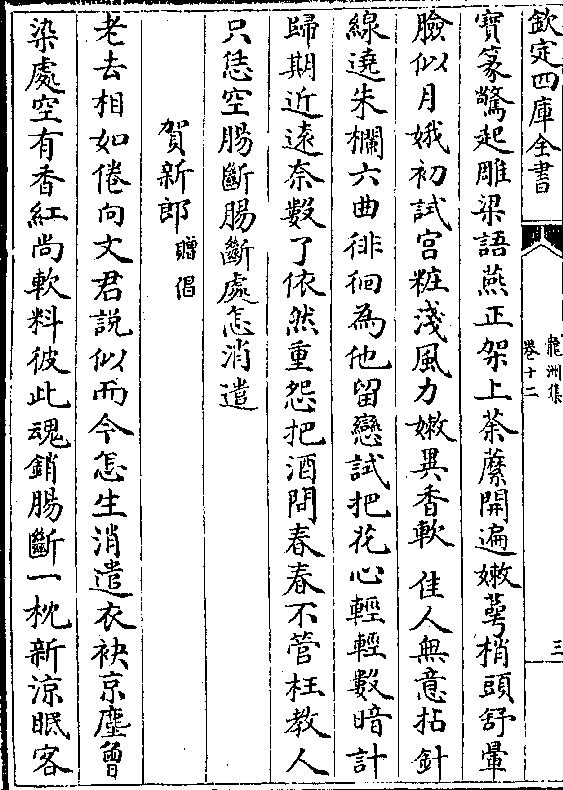 欽定四庫全書
龍洲集
卷十二
三
寶篆驚起雕梁語燕正架上荼蘼開遍嫩萼梢頭舒暈
臉似月娥初試宮粧淺風力嫩異香軟 佳人無意拈針
線遶朱欄六曲徘徊為他留戀試把花心輕輕數暗計
歸期近遠奈數了依然重怨把酒問春春不管枉教人
只恁空腸斷腸斷處怎消遣
賀新郎贈倡
老去相如倦向文君説似而今怎生消遣衣袂京塵曾
染處空有香紅尚軟料彼此魂銷腸斷一枕新涼眠客